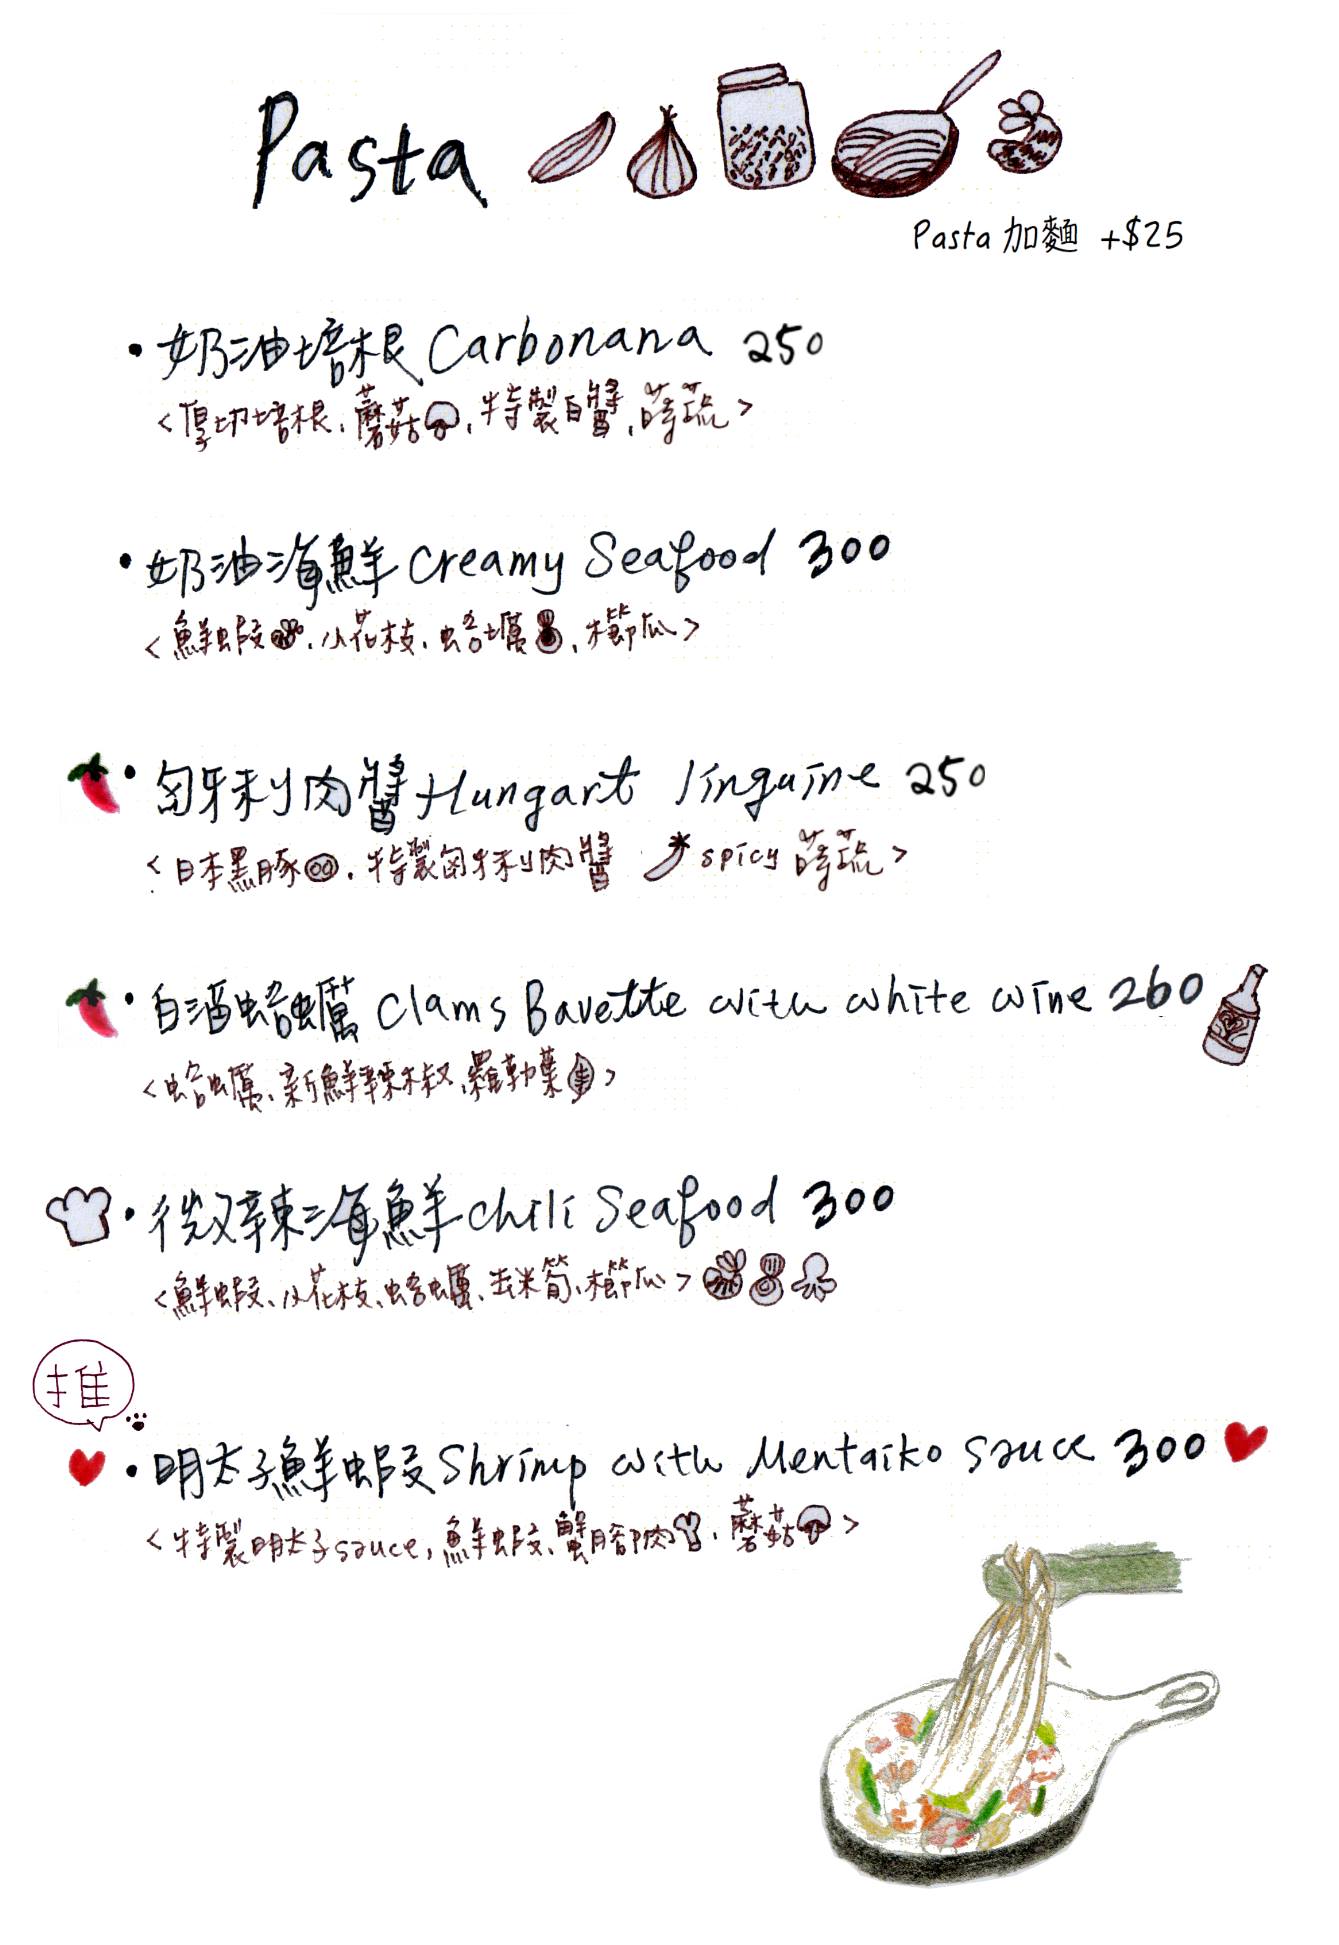 Pasta
Pasta 加麵 +$25
• 奶油培根 Carbonana 250
<厚切培根、蘑菇, 特製白醬, 時蔬>
• 奶油海鮮 Creamy Seafood 300
<鮮蝦, 小花枝、蛤蠣, 櫛瓜>
• 匈牙利肉醬 Hungart linguine 250
<日本黑豚, 特製匈牙利肉醬 spicy 蒔蔬>
• 白酒蛤蠣 Clams Bavette with white wine 260
<蛤蠣、新鮮辣椒, 羅勒葉>
• 微辣海鮮 chili Seafood 300
<鮮蝦、小花枝、蛤蠣、玉米筍、櫛瓜>
推
• 明太子鮮蝦 Shrimp with Mentaiko sauce 300
<特製明太子sauce, 鮮蝦、蟹腳肉, 蘑菇>